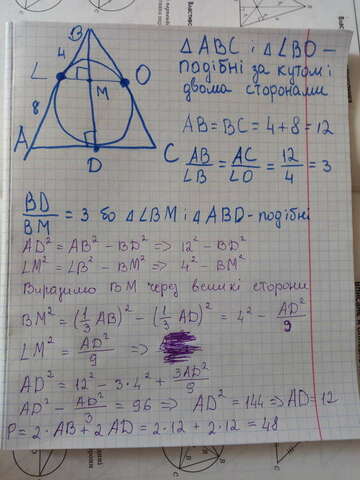 B
4
L
O
M
8
A
D
C
△ABC і △LBO –
подібні за кутом і
двома сторонами
AB = BC = 4 + 8 = 12
AB/LB = AC/LO = 12/4 = 3
BD/BM = 3 бо △LBM і △ABD - подібні
AD² = AB² - BD² => 12² - BD²
LM² = LB² - BM² => 4² - BM²
Виразимо BM через великі сторони
BM² = (1/3 AB)² - (1/3 AD)² = 4² - AD²/9
LM² = AD²/9 =>
AD² = 12² - 3·4² + 3AD²/9
AD² - AD²/3 = 96 => AD² = 144 => AD = 12
P = 2·AB + 2AD = 2·12 + 2·12 = 48